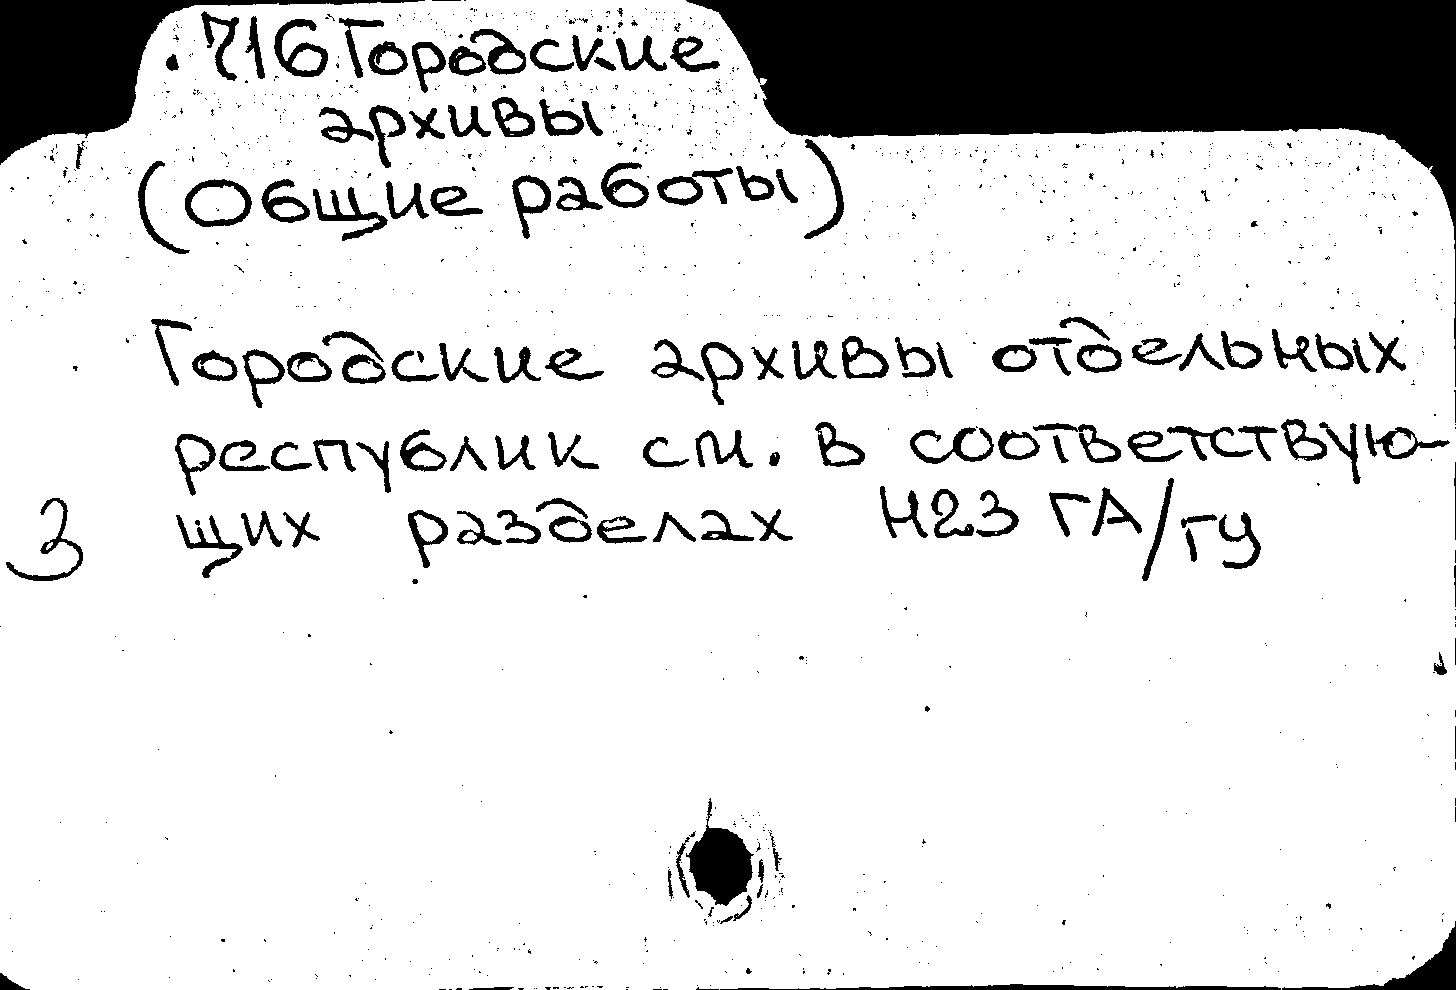 .716 Городские
архивы
(Общие работы)
Городские архивы отдельных
республик см. в соответствую-
3 щих разделах Н23 ГА/ГУ